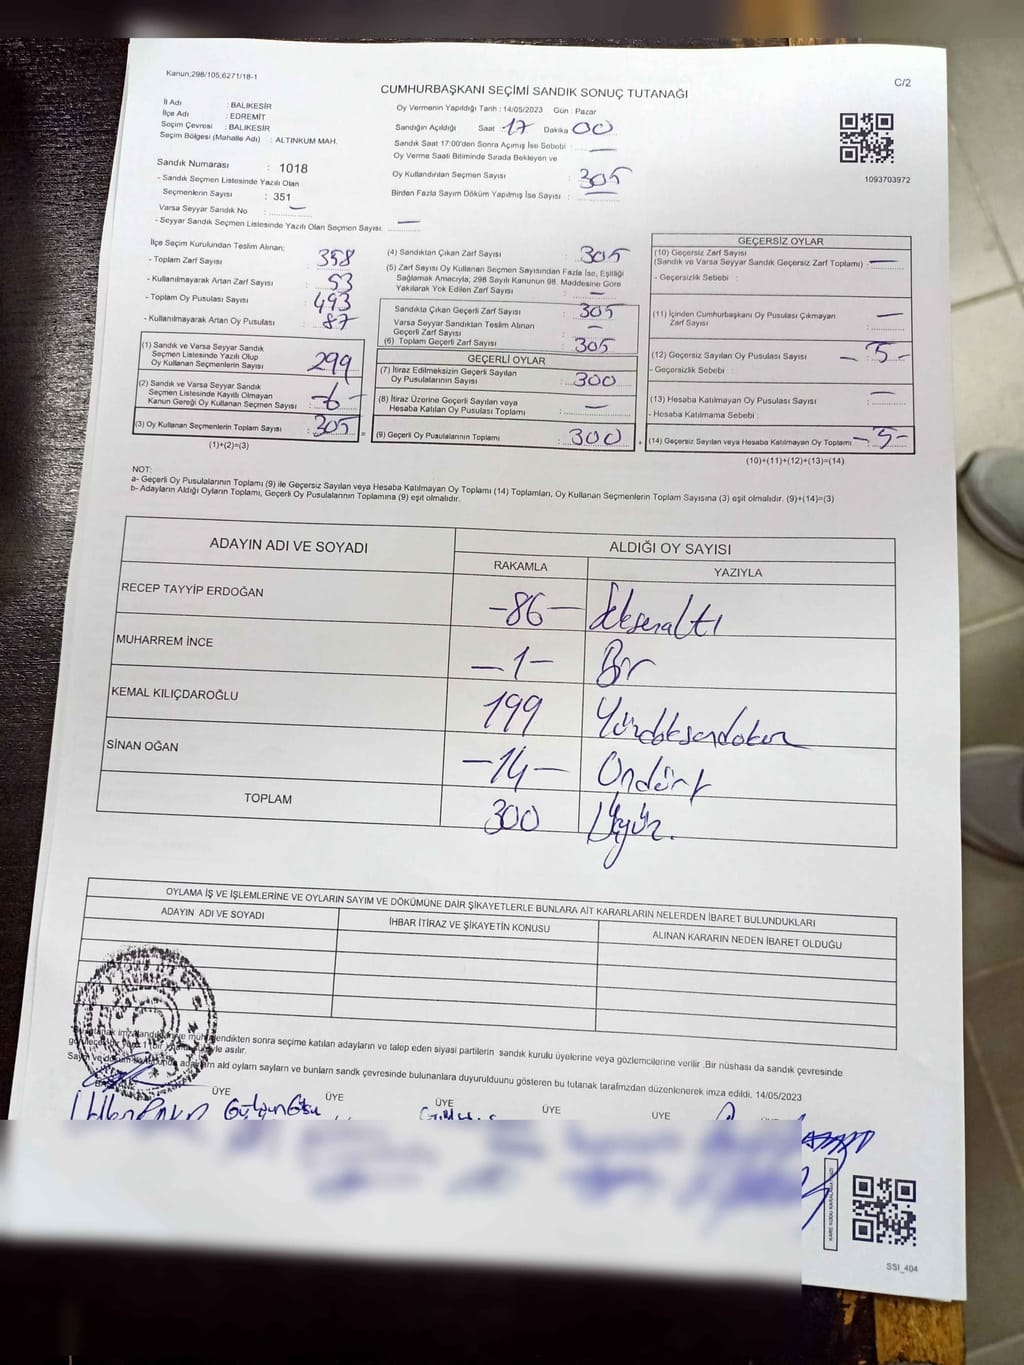 Kanun;298/105,6271/18-1
C/2
CUMHURBAŞKANI SEÇİMİ SANDIK SONUÇ TUTANAĞI
İl Adı : BALIKESİR
İlçe Adı : EDREMİT
Seçim Çevresi : BALIKESİR
Seçim Bölgesi (Mahalle Adı) : ALTINKUM MAH.
Oy Vermenin Yapıldığı Tarih : 14/05/2023 Gün : Pazar
Sandığın Açıldığı Saat 17 Dakika 00
Sandık Saat 17:00'den Sonra Açımış İse Sebebi : —
Oy Verme Saati Bitiminde Sırada Bekleyen ve
Oy Kullandırılan Seçmen Sayısı : 305
Birden Fazla Sayım Döküm Yapılmış İse Sayısı : —
1093703972
Sandık Numarası : 1018
- Sandık Seçmen Listesinde Yazılı Olan
Seçmenlerin Sayısı : 351
Varsa Seyyar Sandık No : —
- Seyyar Sandık Seçmen Listesinde Yazılı Olan Seçmen Sayısı: —
İlçe Seçim Kurulundan Teslim Alınan;
- Toplam Zarf Sayısı : 358
- Kullanılmayarak Artan Zarf Sayısı : 53
- Toplam Oy Pusulası Sayısı : 493
- Kullanılmayarak Artan Oy Pusulası : 87
(1) Sandık ve Varsa Seyyar Sandık
Seçmen Listesinde Yazılı Olup
Oy Kullanan Seçmenlerin Sayısı : 299
(2) Sandık ve Varsa Seyyar Sandık
Seçmen Listesinde Kayıtlı Olmayan
Kanun Gereği Oy Kullanan Seçmen Sayısı : -6-
(3) Oy Kullanan Seçmenlerin Toplam Sayısı : 305
(1)+(2)=(3)
(4) Sandıktan Çıkan Zarf Sayısı : 305
(5) Zarf Sayısı Oy Kullanan Seçmen Sayısından Fazla İse, Eşitliği
Sağlamak Amacıyla; 298 Sayılı Kanunun 98. Maddesine Göre
Yakılarak Yok Edilen Zarf Sayısı : —
Sandıkta Çıkan Geçerli Zarf Sayısı : 305
Varsa Seyyar Sandıktan Teslim Alınan
Geçerli Zarf Sayısı : —
(6) Toplam Geçerli Zarf Sayısı : 305
GEÇERLİ OYLAR
(7) İtiraz Edilmeksizin Geçerli Sayılan
Oy Pusulalarının Sayısı : 300
(8) İtiraz Üzerine Geçerli Sayılan veya
Hesaba Katılan Oy Pusulası Toplamı : —
(9) Geçerli Oy Pusulalarının Toplamı : 300
GEÇERSİZ OYLAR
(10) Geçersiz Zarf Sayısı
(Sandık ve Varsa Seyyar Sandık Geçersiz Zarf Toplamı) : —
- Geçersizlik Sebebi :
(11) İçinden Cumhurbaşkanı Oy Pusulası Çıkmayan
Zarf Sayısı : —
(12) Geçersiz Sayılan Oy Pusulası Sayısı : -5-
- Geçersizlik Sebebi :
(13) Hesaba Katılmayan Oy Pusulası Sayısı : —
- Hesaba Katılmama Sebebi :
(14) Geçersiz Sayılan veya Hesaba Katılmayan Oy Toplamı : -5-
(10)+(11)+(12)+(13)=(14)
NOT:
a- Geçerli Oy Pusulalarının Toplamı (9) ile Geçersiz Sayılan veya Hesaba Katılmayan Oy Toplamı (14) Toplamları, Oy Kullanan Seçmenlerin Toplam Sayısına (3) eşit olmalıdır. (9)+(14)=(3)
b- Adayların Aldığı Oyların Toplamı, Geçerli Oy Pusulalarının Toplamına (9) eşit olmalıdır.
ADAYIN ADI VE SOYADI
ALDIĞI OY SAYISI
RAKAMLA YAZIYLA
RECEP TAYYİP ERDOĞAN -86- Seksenaltı
MUHARREM İNCE -1- Bir
KEMAL KILIÇDAROĞLU 199 Yüzdoksandokuz
SİNAN OĞAN -14- Ondört
TOPLAM 300 Üçyüz.
OYLAMA İŞ VE İŞLEMLERİNE VE OYLARIN SAYIM VE DÖKÜMÜNE DAİR ŞİKAYETLERLE BUNLARA AİT KARARLARIN NELERDEN İBARET BULUNDUKLARI
ADAYIN ADI VE SOYADI İHBAR İTİRAZ VE ŞİKAYETİN KONUSU ALINAN KARARIN NEDEN İBARET OLDUĞU
tutanak imzalandıktan ve mühürlendikten sonra seçime katılan adayların ve talep eden siyasi partilerin sandık kurulu üyelerine veya gözlemcilerine verilir .Bir nüshası da sandık çevresinde
asılır.
ald oylarn saylarn ve bunlarn sandk çevresinde bulunanlara duyurulduunu gösteren bu tutanak tarafmzdan düzenlenerek imza edildi. 14/05/2023
ÜYE ÜYE ÜYE ÜYE ÜYE
SSI_404